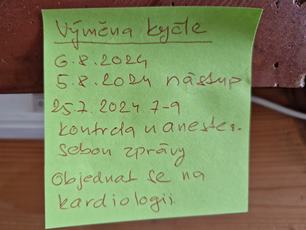 Výměna kyčle
6.8.2024
5.8.2024 nástup
25.7.2024 7-9
kontrola u anestez.
sebou zprávy
Objednat se na
kardiologii